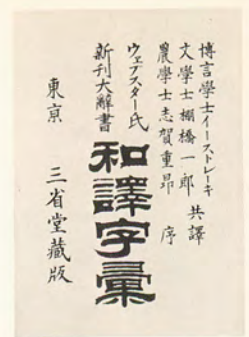 博言學士イーストレーキ
文學士棚橋一郎 共譯
農學士志賀重昻 序
ウェブスター氏
新刊大辭書
和譯字彙
東京 三省堂藏版